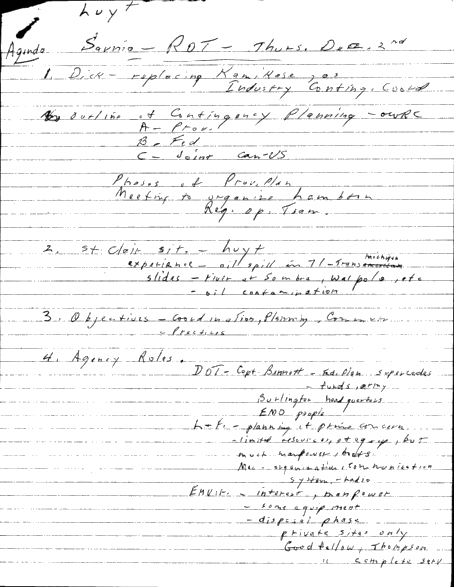 huyt
Agenda Sarnia - ROT - Thurs. Dec. 2nd
1. Dick - replacing Kamikase, as
Industry Conting. Coord
Outline of Contingency Planning - OWRC
A - Prov.
B - Fed
C - Joint Can-US
Phases of Prov. Plan
Meeting to organize Lambton
Reg. Op. Team.
2. St. Clair sit. - huyt
experience - oil spill in 71 - Trans michigan
slides - river at Sombra, Walpole, etc
- oil contamination
3. Objectives - Coordination, Planning, Commun
- Practices
4. Agency Roles.
DOT - Capt Bennett - Fed. Plan supercedes
- funds, army
Burlington headquarters
EMO people
L+F. - planning of prime concern
- limited resources, at egop, but
much manpower, boats.
Mac - organization, communication
system - radio
EMUK. - interest, manpower
- some equipment
- disposal phase
private sites only
Goodfellow, Thompson
" complete serv